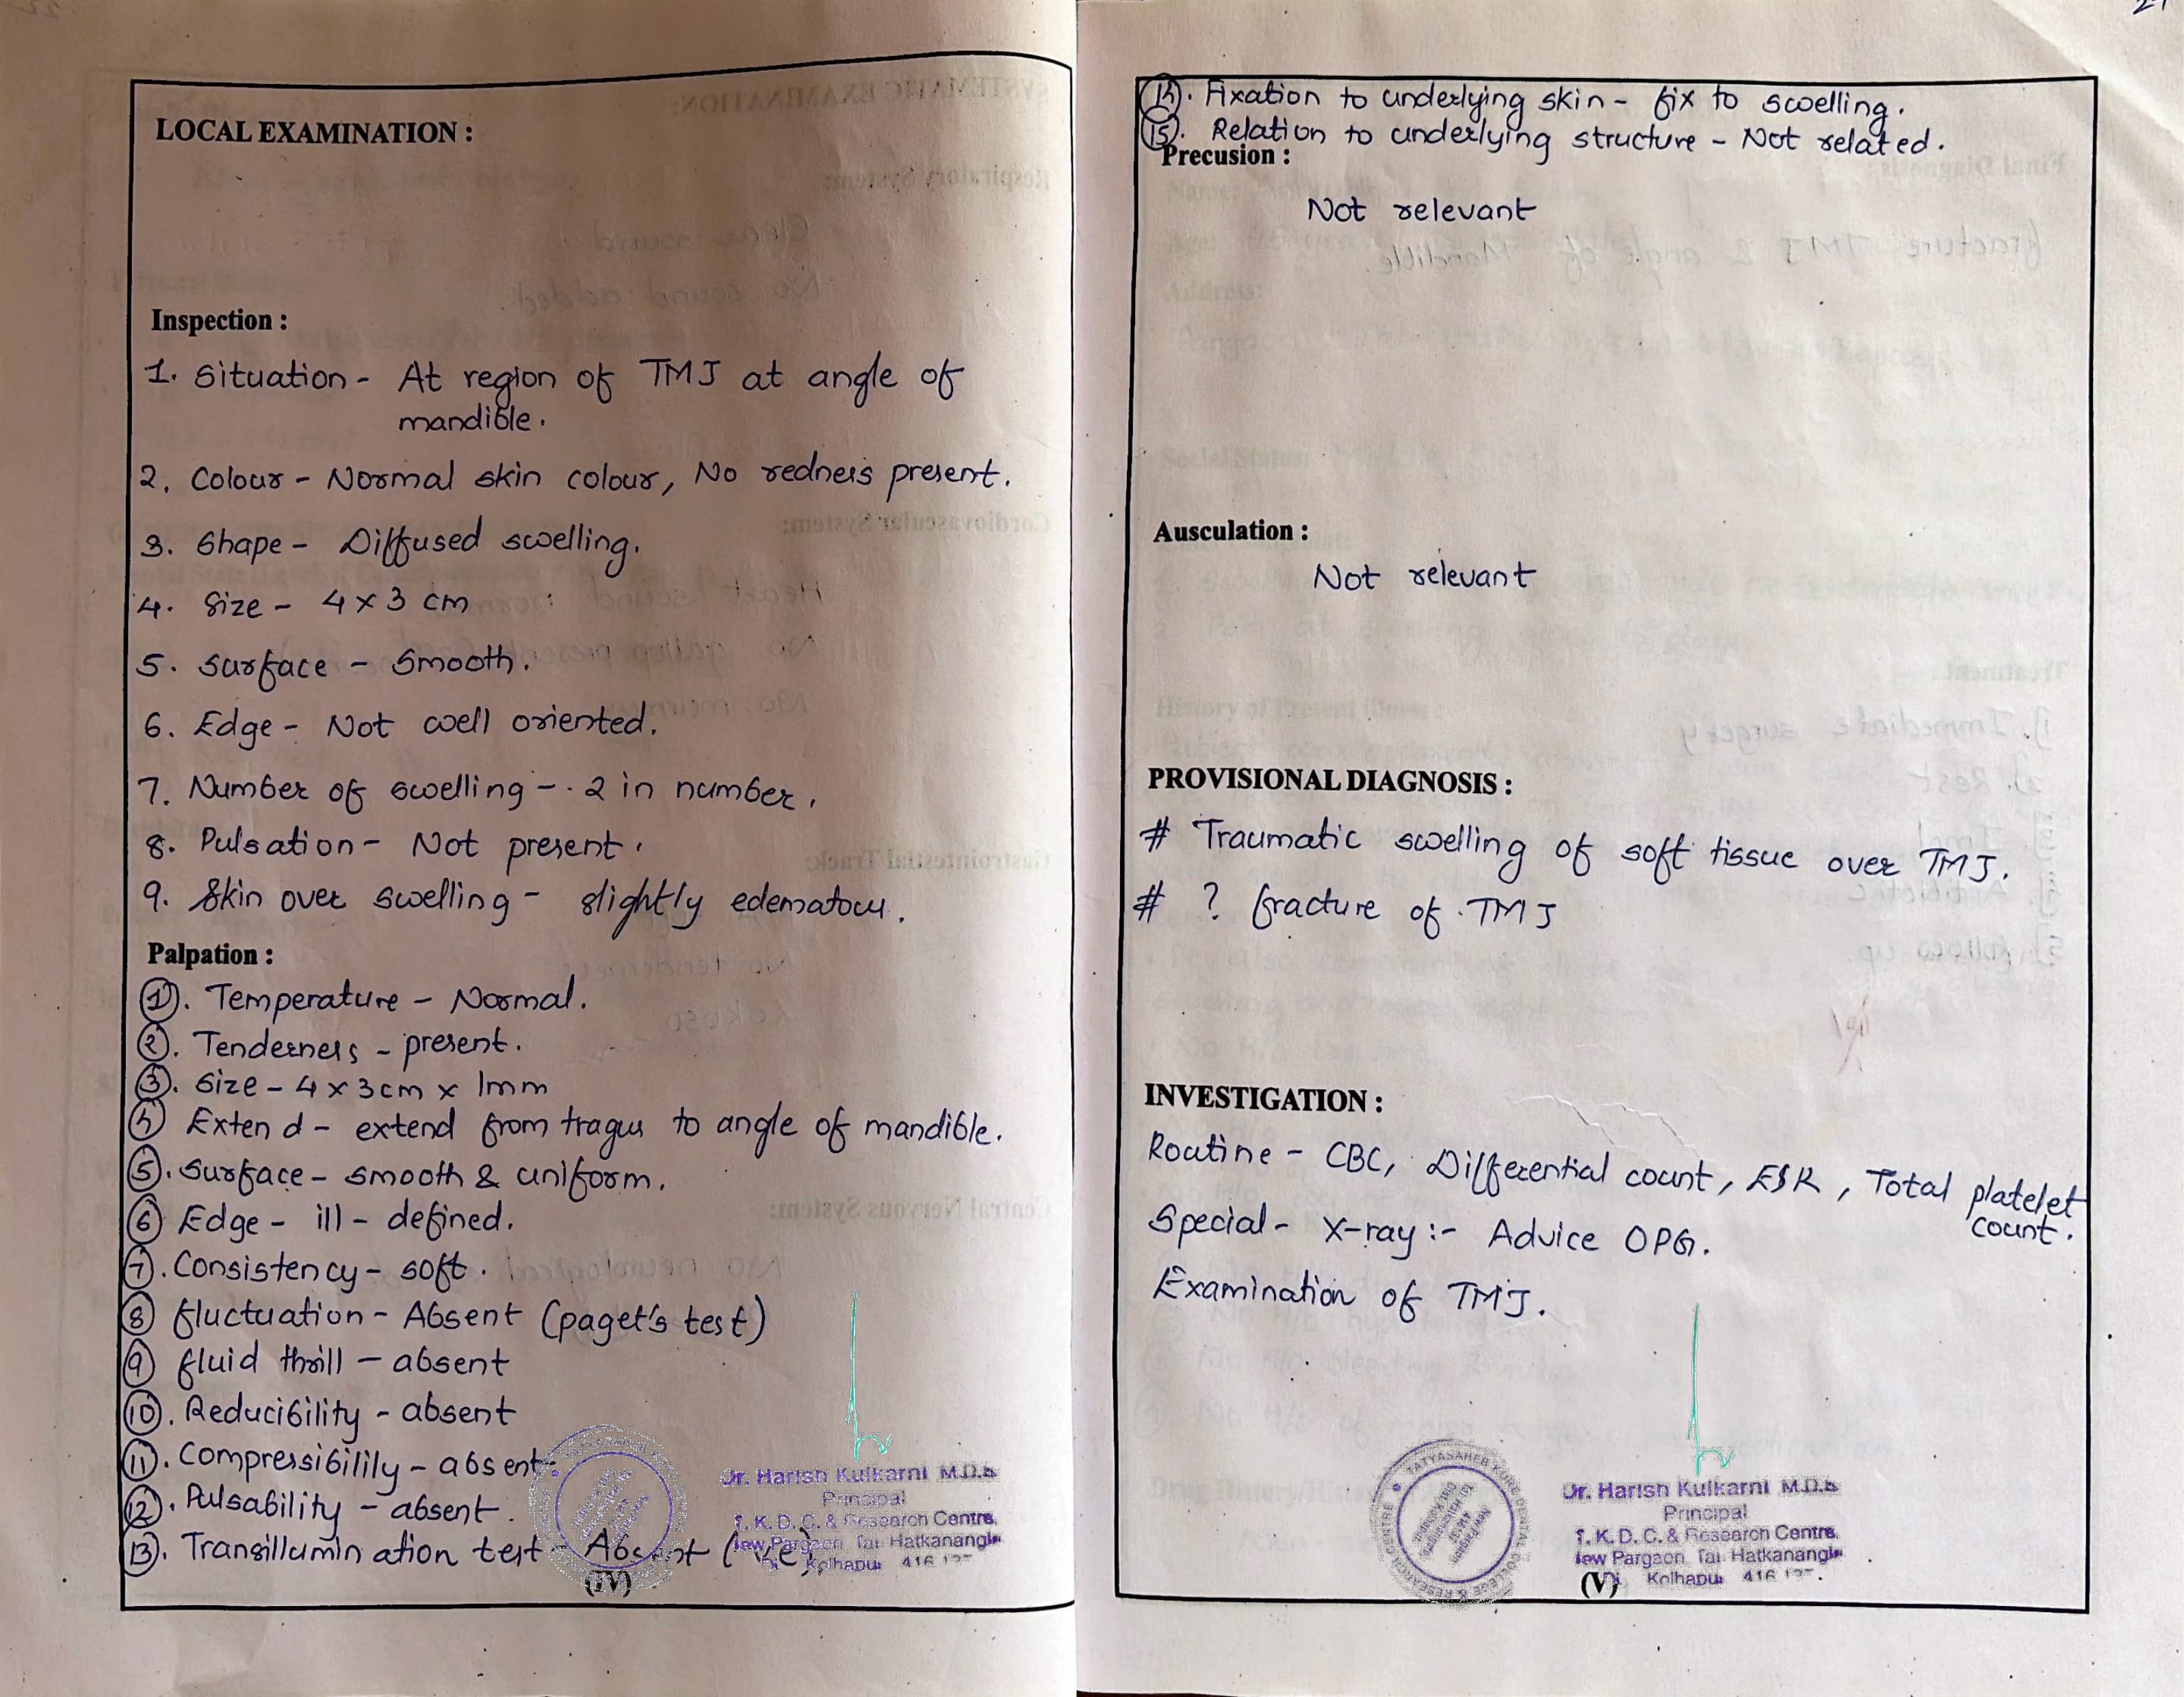 LOCAL EXAMINATION :
Inspection :
1. Situation - At region of TMJ at angle of
mandible.
2. Colour - Normal skin colour, No redness present.
3. Shape - Diffused swelling.
4. Size - 4 x 3 cm
5. Surface - Smooth.
6. Edge - Not well oriented.
7. Number of swelling - 2 in number.
8. Pulsation - Not present.
9. Skin over swelling - slightly edematous.
Palpation :
1). Temperature - Normal.
2). Tenderness - present.
3). Size - 4 x 3cm x 1mm
4) Extend - extend from tragus to angle of mandible.
5). Surface - smooth & uniform.
6) Edge - ill-defined.
7). Consistency - soft.
8) fluctuation - Absent (paget's test)
9) fluid thrill - absent
10). Reducibility - absent
11). Compressibilily - absent.
12). Pulsability - absent.
13). Transillumination test - Absent (-ve).
(IV)
Dr. Harish Kulkarni M.D.S
Principal
T. K. D. C. & Research Centre,
New Pargaon, Tal. Hatkanangle
Kolhapur 416 137
14). Fixation to underlying skin - fix to swelling.
15). Relation to underlying structure - Not related.
Precusion :
Not relevant
Ausculation :
Not relevant
PROVISIONAL DIAGNOSIS :
# Traumatic swelling of soft tissue over TMJ.
# ? fracture of TMJ
INVESTIGATION :
Routine - CBC, Differential count, ESR, Total platelet
count.
Special - X-ray :- Advice OPG.
Examination of TMJ.
TATYASAHEB KORE DENTAL COLLEGE & RESEARCH CENTRE
Dr. Harish Kulkarni M.D.S
Principal
T. K. D. C. & Research Centre,
New Pargaon, Tal. Hatkanangle
Di. Kolhapur 416 137.
(V)